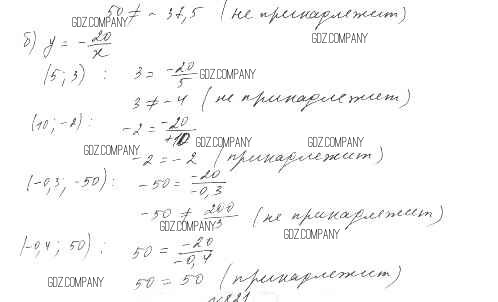 50 ≠ - 37,5 (не принадлежит)
GDZ.COMPANY
б) y = - 20/x
GDZ.COMPANY
(5; 3) : 3 = -20/5
GDZ.COMPANY
3 ≠ -4 (не принадлежит)
(10; -2): -2 = -20/+10
GDZ.COMPANY GDZ.COMPANY GDZ.COMPANY
-2 = -2 (принадлежит)
(-0,3; -50): -50 = -20/-0,3
-50 ≠ 200/3 (не принадлежит)
GDZ.COMPANY GDZ.COMPANY
(-0,4; 50): 50 = -20/-0,4
GDZ.COMPANY
50 = 50 (принадлежит)